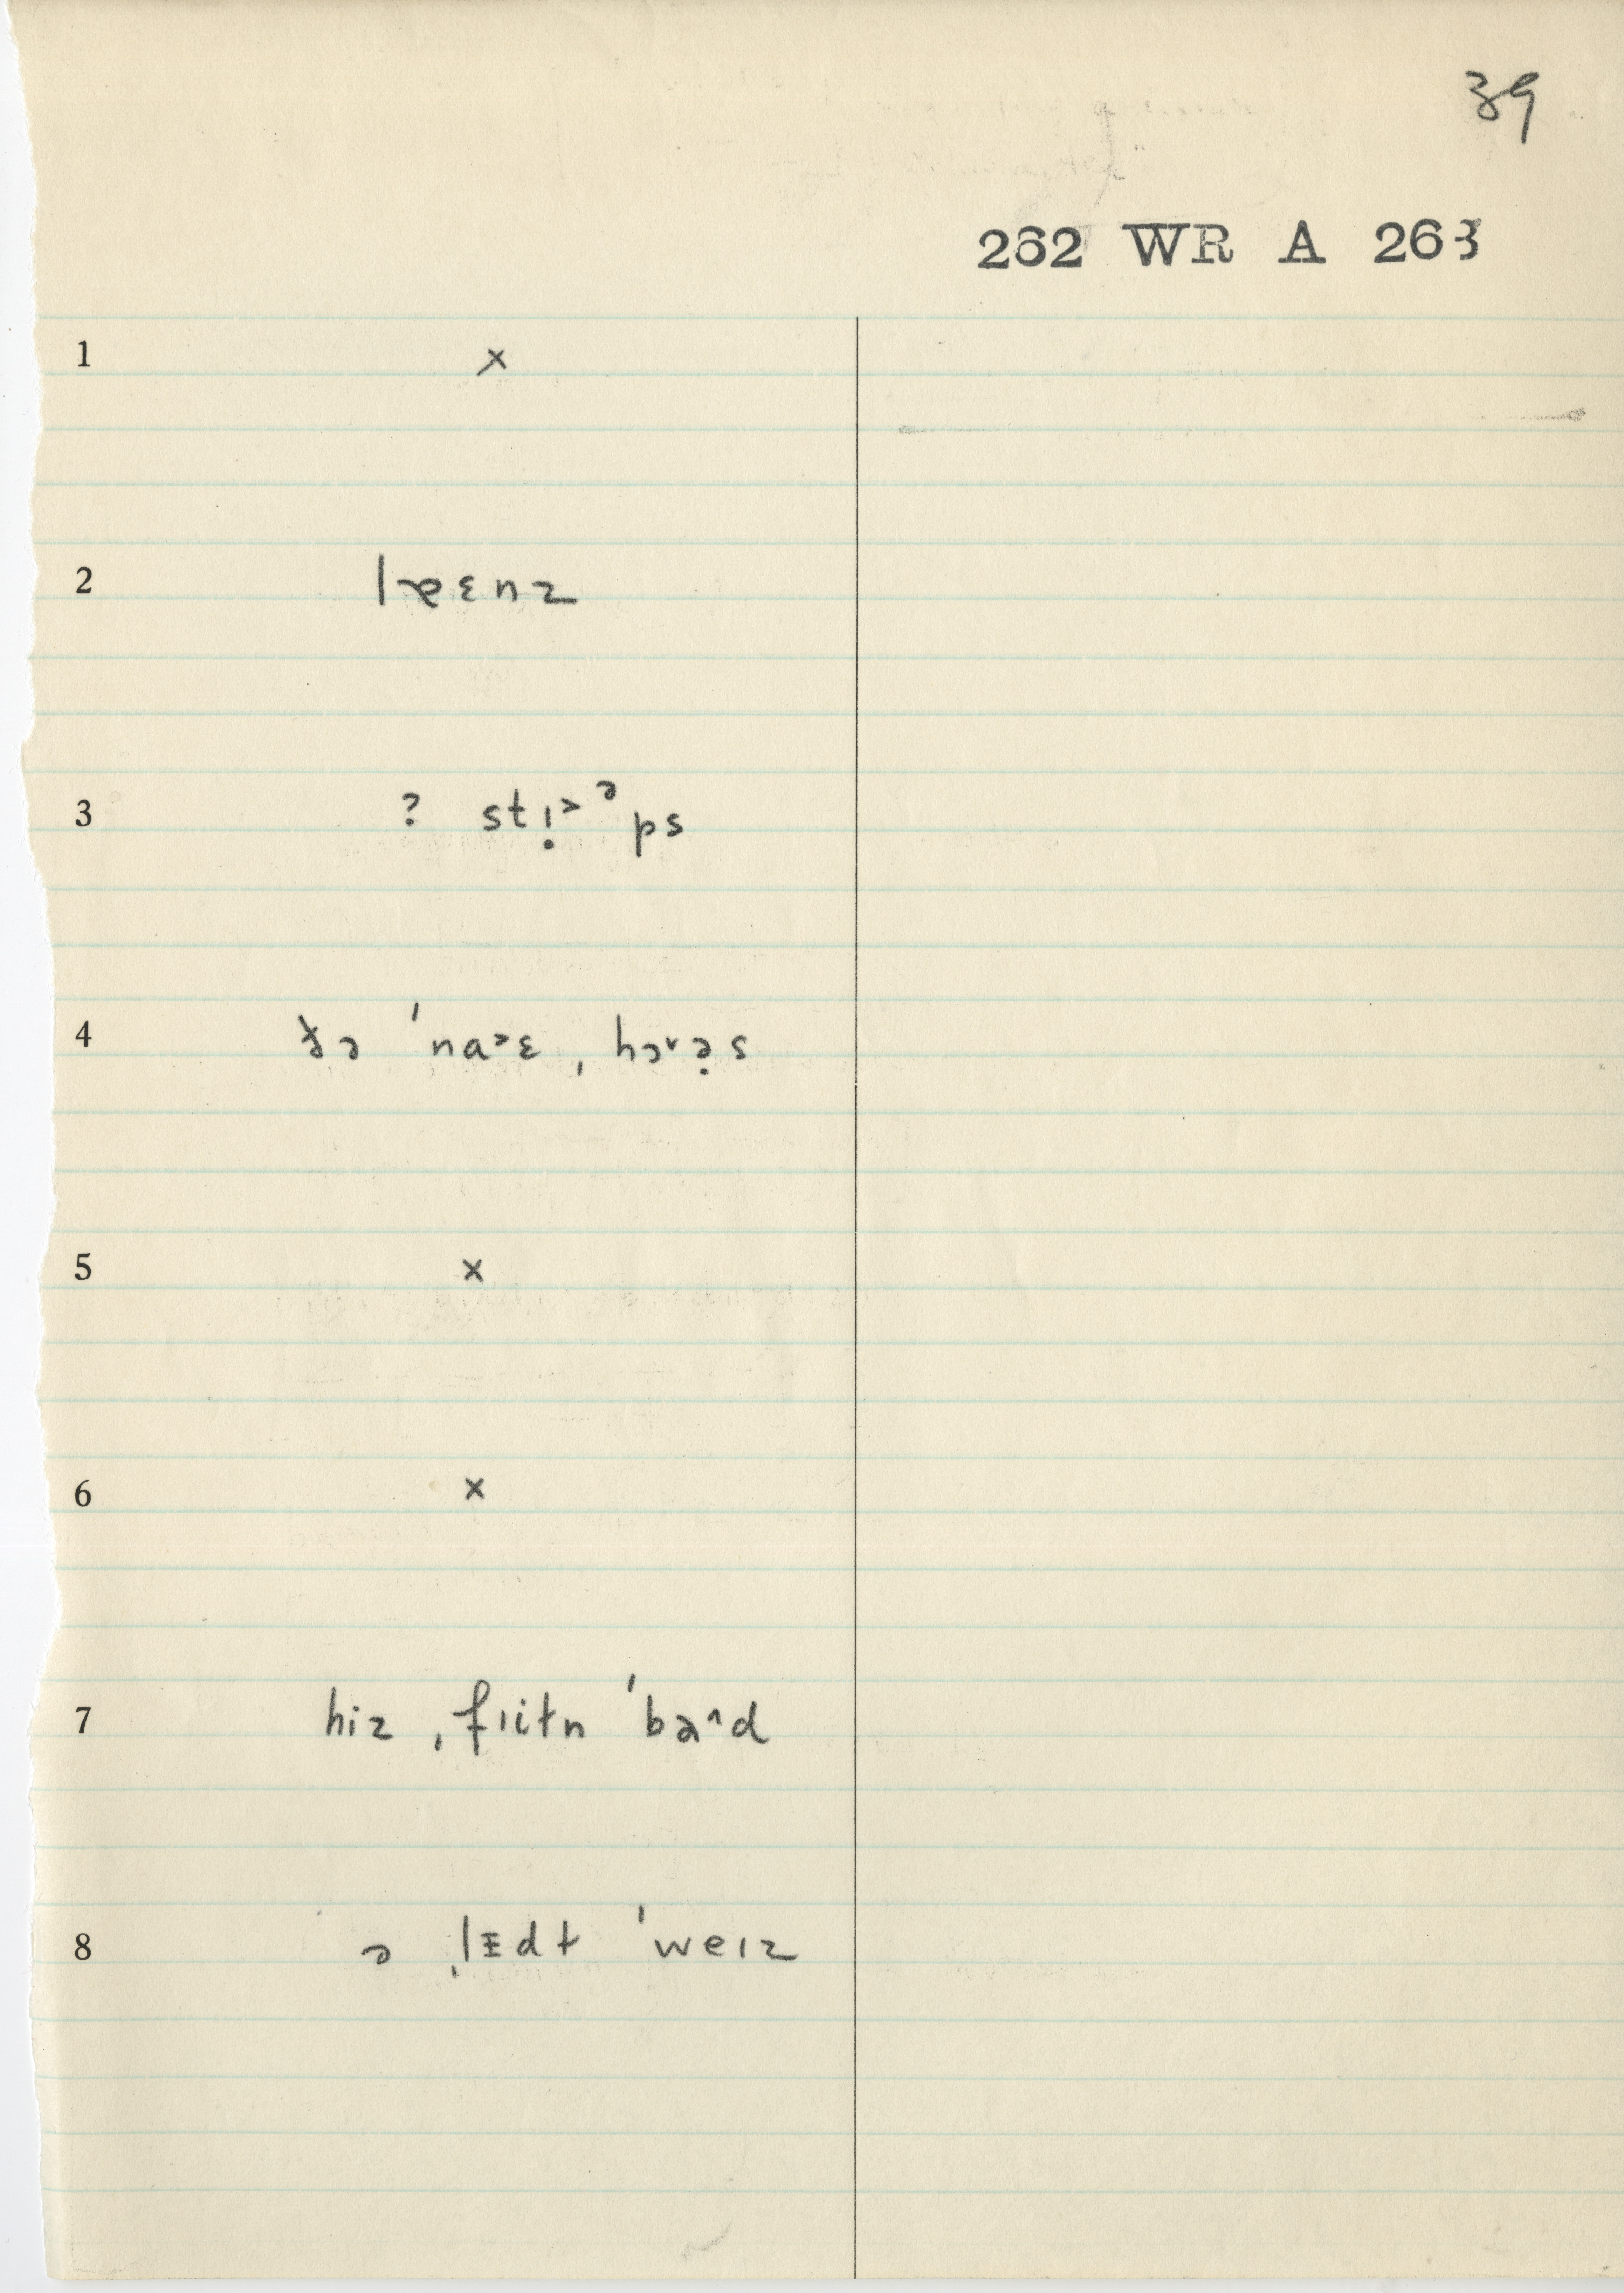 39
262 WR A 263
1 ×
2 læɛnz
3 ? stị˃ᵊps
4 ðə ˈna˃ɛ ˌhɔ˅ə̣s
5 ×
6 ×
7 hiz ˌfɹitn ˈba˄d
8 ə ˌlɪdt ˈweɪz